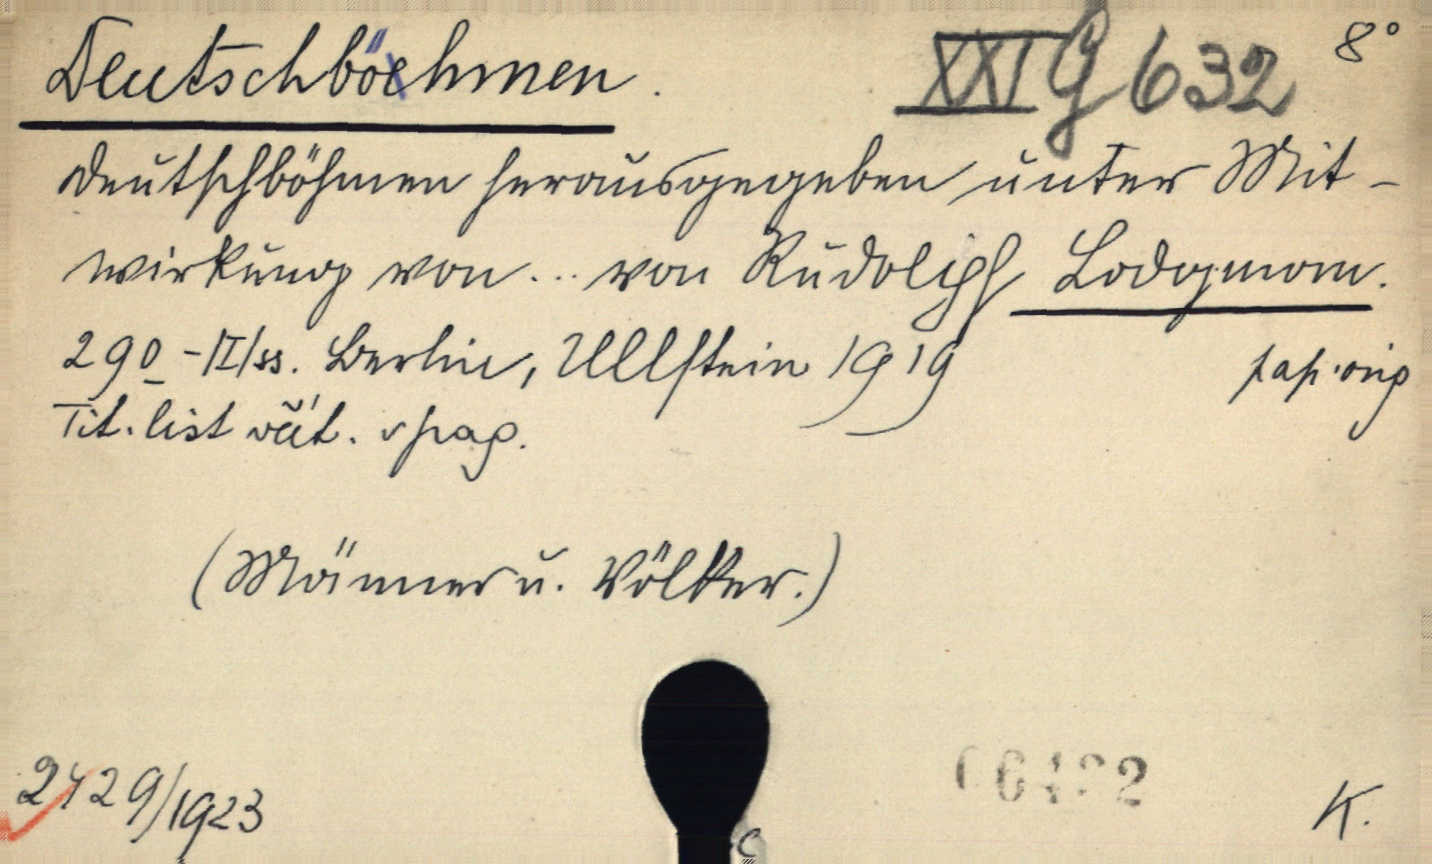 Deutschböhmen. XXI G 632 8°
Deutschböhmen herausgegeben unter Mit-
wirkung von ... von Rudolph Lodgmann.
290 - II/ss. Berlin, Ullstein 1919 pap. orig
Tit. list včít. v pag.
(Männer u. Völker.)
2429/1923
K.
c